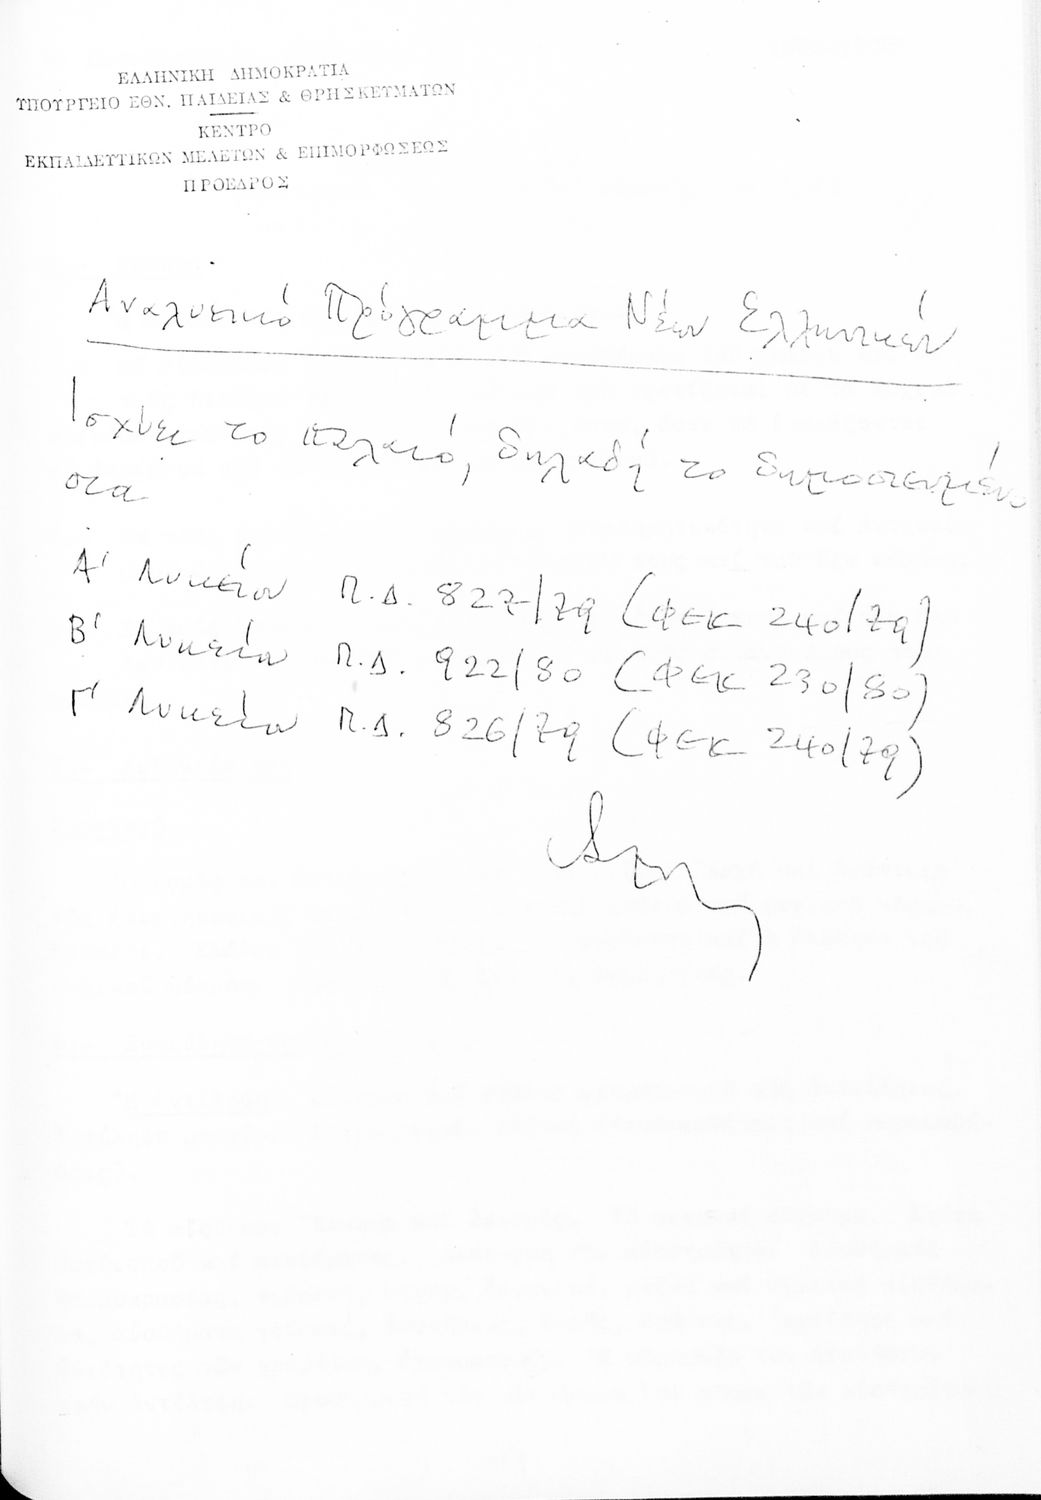 ΕΛΛΗΝΙΚΗ ΔΗΜΟΚΡΑΤΙΑ
ΥΠΟΥΡΓΕΙΟ ΕΘΝ. ΠΑΙΔΕΙΑΣ & ΘΡΗΣΚΕΥΜΑΤΩΝ
ΚΕΝΤΡΟ
ΕΚΠΑΙΔΕΥΤΙΚΩΝ ΜΕΛΕΤΩΝ & ΕΠΙΜΟΡΦΩΣΕΩΣ
ΠΡΟΕΔΡΟΣ
Αναλυτικό Πρόγραμμα Νέων Ελληνικών
Ισχύει το παλαιό, δηλαδή το δημοσιευμένο
στα
Α' Λυκείου Π.Δ. 827/79 (ΦΕΚ 240/79)
Β' Λυκείου Π.Δ. 922/80 (ΦΕΚ 230/80)
Γ' Λυκείου Π.Δ. 826/79 (ΦΕΚ 240/79)